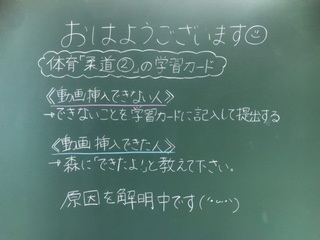 おはようございます☺
体育「柔道②」の学習カード
《動画挿入できない人》
→できないことを学習カードに記入して提出する
《動画挿入できた人》
→森に「できたよ!」と教えて下さい。
原因を解明中です(¨)